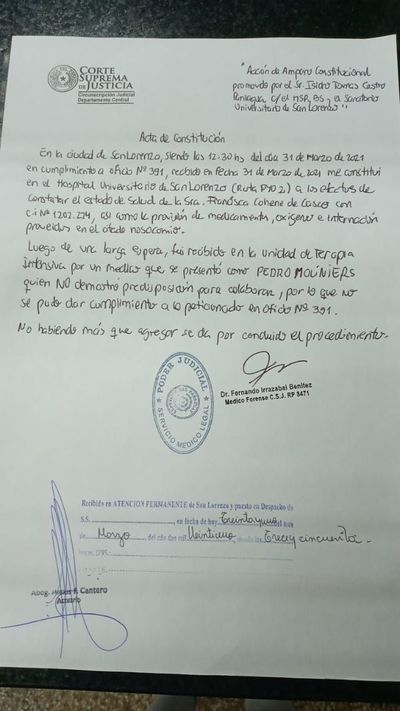 CORTE
SUPREMA
DE JUSTICIA
Circunscripción Judicial
Departamento Central
"Acción de Amparo Constitucional
promovido por el Sr. Isidro Tomas Castro
Paniagua c/el MSP.BS y el Sanatorio
Universitario de San Lorenzo"
Acta de Constitución
En la ciudad de San Lorenzo, siendo las 12:30 hs del día 31 de Marzo de 2021
en cumplimiento a oficio Nº 391, recibido en fecha 31 de Marzo de 2021 me constitui
en el Hospital Universitario de San Lorenzo (Ruta PY02) a los efectos de
constatar el estado de Salud de la Sra. Francisca Cohene de Casco con
C.I Nº 1.202.274, así como la provisión de medicamentos, oxígeno e internación
proveidos en el citado nosocomio.
Luego de una larga espera, fui recibido en la Unidad de Terapia
Intensiva por un medico que se presentó como PEDRO MOLINIERS
quien NO demostró predisposición para colaborar, por lo que no
se pudo dar cumplimiento a lo peticionado en oficio Nº 391.
No habiendo más que agregar se da por concluido el procedimiento.
PODER JUDICIAL
SERVICIO MEDICO LEGAL
Dr. Fernando Irrazabal Benitez
Medico Forense C.S.J. RP 8471
Recibido en ATENCION PERMANENTE de San Lorenzo y puesta en Despacho de
S.S. en fecha de hoy Treinta y uno del mes
de Marzo del año dos mil Veintiuno, siendo las Trece y cincuenta.-
Abog. F. Cantero
Actuario